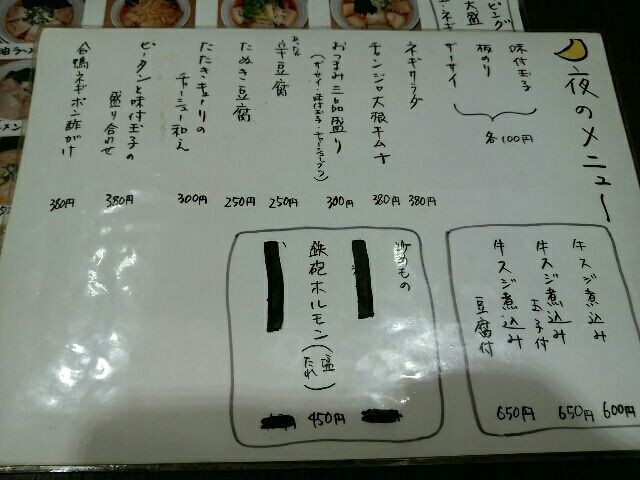 夜のメニュー
味付玉子
板のり
ザーサイ
各100円
ネギサラダ
380円
チャンジャ大根キムチ
380円
おつまみ三品盛り
(ザーサイ・味付玉子・チャーシューブツ)
300円
辛豆腐
250円
たぬき豆腐
250円
たたきキューリの
チャーシュー和え
300円
ピータンと味付玉子の
盛り合わせ
380円
合鴨ネギポン酢がけ
380円
牛スジ煮込み
600円
牛スジ煮込み
玉子付
650円
牛スジ煮込み
豆腐付
650円
炒めもの
鉄砲ホルモン(塩 たれ)
450円